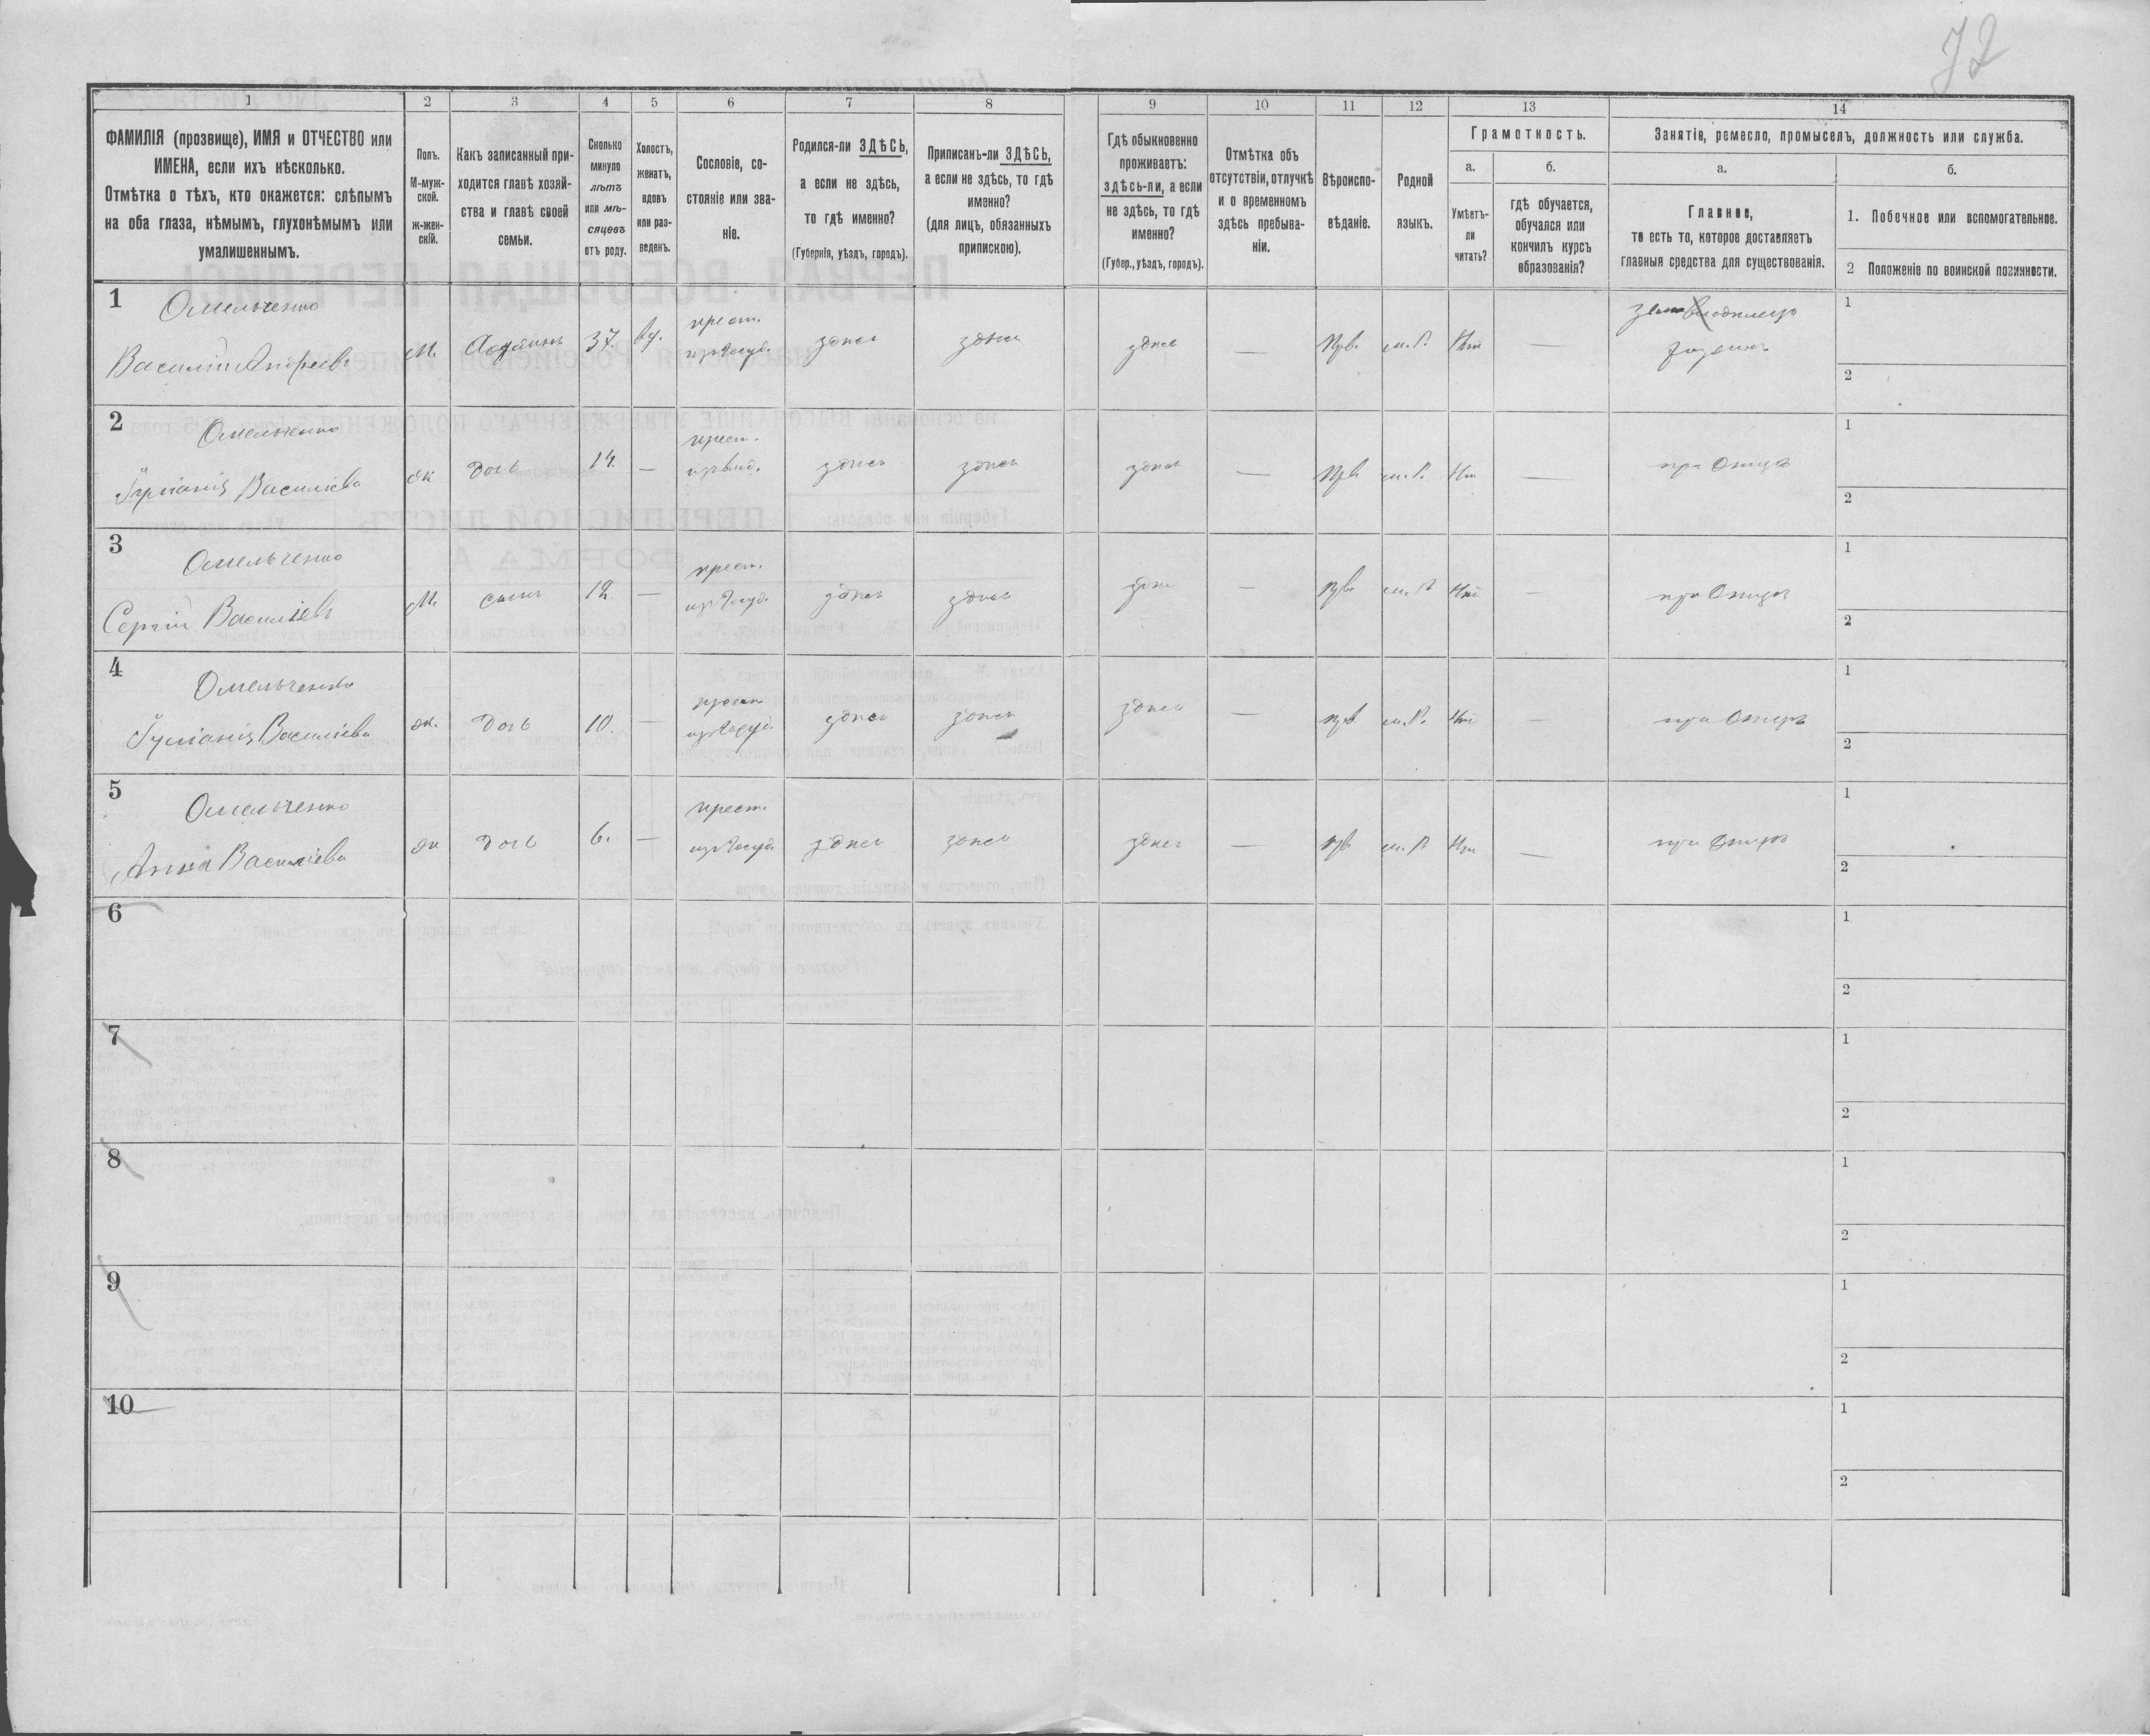 72
1
2
3
4
5
6
7
8
9
10
11
12
13
14
ФАМИЛІЯ (прозвище), ИМЯ и ОТЧЕСТВО или
ИМЕНА, если ихъ нѣсколько.
Отмѣтка о тѣхъ, кто окажется: слѣпымъ
на оба глаза, нѣмымъ, глухонѣмымъ или
умалишеннымъ.
Полъ.
М-муж-
ской.
ж-жен-
скій.
Какъ записанный при-
ходится главѣ хозяй-
ства и главѣ своей
семьи.
Сколько
минуло
лѣтъ
или мѣ-
сяцевъ
отъ роду.
Холостъ,
женатъ,
вдовъ
или раз-
веденъ.
Сословіе, со-
стояніе или зва-
ніе.
Родился-ли ЗДѢСЬ,
а если не здѣсь,
то гдѣ именно?
(Губернія, уѣздъ, городъ).
Приписанъ-ли ЗДѢСЬ,
а если не здѣсь, то гдѣ
именно?
(для лицъ, обязанныхъ
припискою).
Гдѣ обыкновенно
проживаетъ:
здѣсь-ли, а если
не здѣсь, то гдѣ
именно?
(Губер., уѣздъ, городъ).
Отмѣтка объ
отсутствіи, отлучкѣ
и о временномъ
здѣсь пребыва-
ніи.
Вѣроиспо-
вѣданіе.
Родной
языкъ.
Грамотность.
а.
Умѣетъ-
ли
читать?
б.
гдѣ обучается,
обучался или
кончилъ курсъ
образованія?
Занятіе, ремесло, промыселъ, должность или служба.
а.
Главное,
то есть то, которое доставляетъ
главныя средства для существованія.
б.
1. Побочное или вспомогательное.
2 Положеніе по воинской повинности.
1
Омельченко
Василій Андреевъ
М.
37.
вд.
крест.
изъ госуд.
здѣсь
здѣсь
здѣсь
—
Прв.
м.р.
Нѣт
—
1
2
2
Омельченко
Василіева
ж
дочь
14.
—
крест.
здѣсь
здѣсь
здѣсь
—
Прв.
м.р.
Нѣт
—
при отцѣ
1
2
3
Омельченко
Сергій Василіевъ
М.
сынъ
12.
—
крест.
изъ госуд.
здѣсь
здѣсь
здѣсь
—
прв.
м.р.
Нѣт
—
при отцѣ
1
2
4
Омельченко
Василіева
ж.
дочь
10.
—
крест.
изъ госуд.
здѣсь
здѣсь
здѣсь
—
прв.
м.р.
Нѣт
—
при отцѣ
1
2
5
Омельченко
Анна Василіева
ж
дочь
6.
—
крест.
изъ госуд.
здѣсь
здѣсь
здѣсь
—
прв.
м.р.
Нѣт
—
при отцѣ
1
2
6
1
2
7
1
2
8
1
2
9
1
2
10
1
2